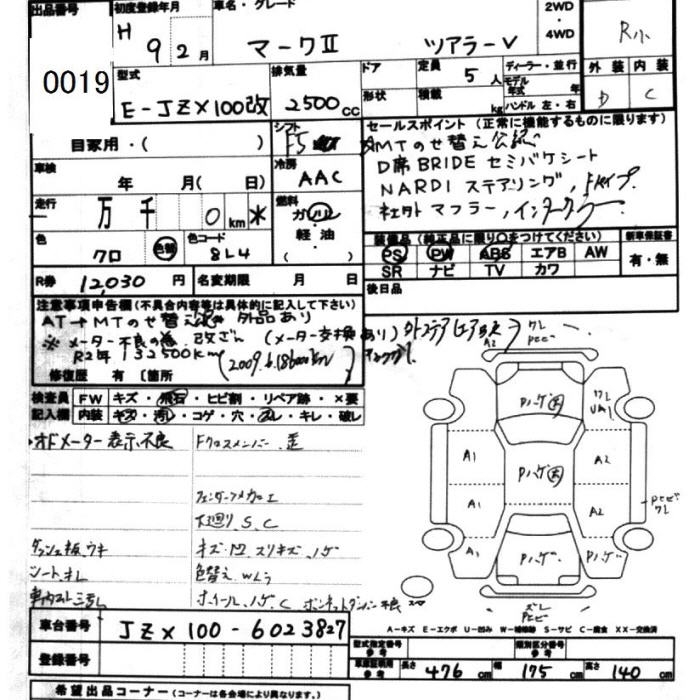 出品番号 初度登録年月 車名・グレード 2WD・4WD
0019 H 9 2月 マークⅡ ツアラーV R小
型式 排気量 ドア 定員 5人 ディーラー・並行 外装 内装
E-JZX100改 2500cc 形状 積載 kg モデル年式 年 ハンドル 左・右 D C
自家用・( ) シフト F5 セールスポイント (正常に機能するものに限ります)
MTのせ替え公認
車検 冷房 D席BRIDE セミバケシート
年 月( 日) AAC NARDI ステアリング
走行 燃料 社外マフラー,インタークーラー
万 千 0km * ガソリン
軽・油
色 色替 色コード ( ) 装備品 (純正品に限り○をつけてください) 新車保証書
クロ 8L4 PS PW ABS エアB AW 有・無
SR ナビ TV カワ
R券 12,030円 名変期限 月 日 後日品
注意事項申告欄(不具合内容等は具体的に記入して下さい)
AT→MTのせ替え公認 外品あり
※メーター不良の為 改ざん (メーター交換あり)
R2年 132500km
修復歴 有 〔箇所
検査員 FW キズ・飛石・ヒビ割・リペア跡・×要
記入欄 内装 キズ・汚れ・コゲ・穴・スレ・キレ・破レ
オドメーター表示不良 Fクロスメンバー歪
フェンダー加工
下廻り S.C
ダッシュ板ウキ キズ・凹 スリキズ・ハゲ
シートスレ 色替え Wムラ
車内スレ汚れ ホイールハゲC ボンネットダンパー不良
A2
Pハゲ大
ワレ UA1
A1 Pハゲ大 A2
A1 A2
A1 Pハゲ Pハゲ
A-キズ E-エクボ U-凹み W-補修跡 S-サビ C-腐食 XX-交換済
車台番号 JZX100-6023827
登録番号 型式指定番号 参考 類別区分番号 参考
車庫証明用 参考 長さ 476cm 幅 175cm 高さ 140cm
希望出品コーナー (コーナーは各会場により異なります。)